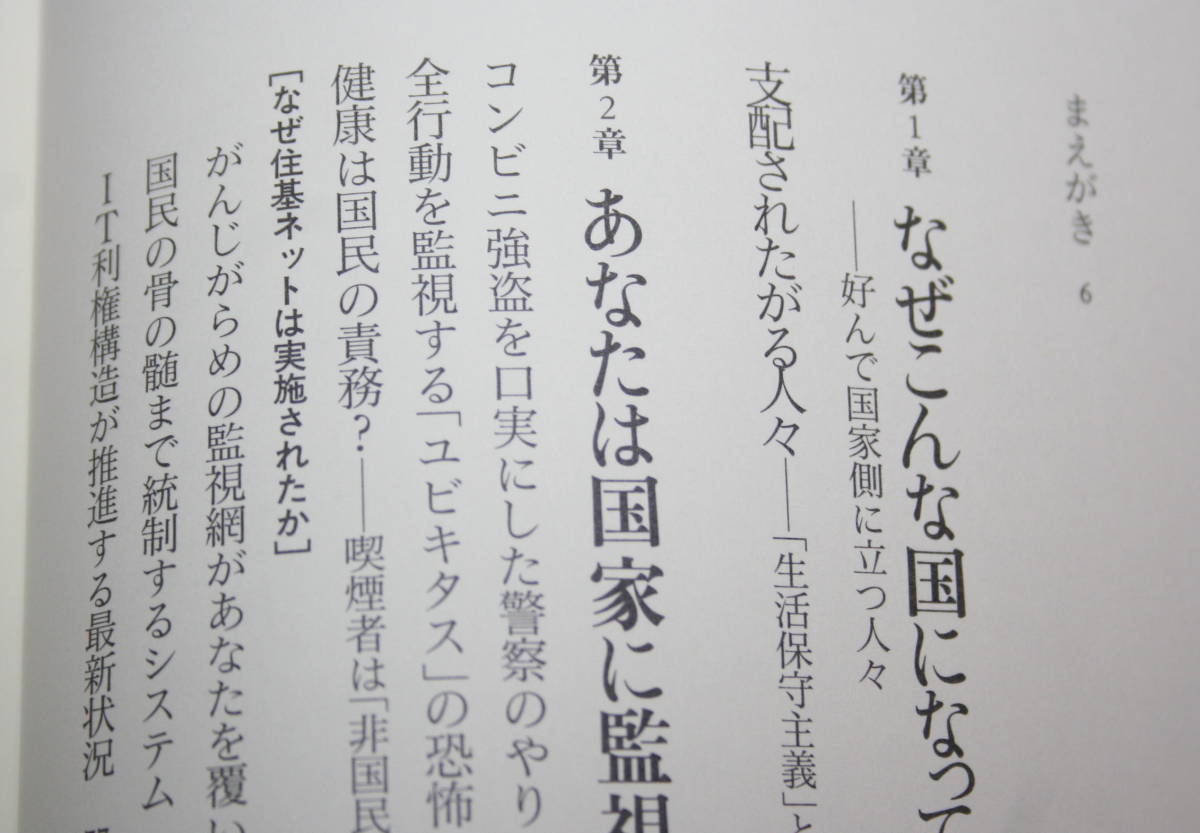 まえがき 6
第1章 なぜこんな国になって
──好んで国家側に立つ人々
支配されたがる人々──「生活保守主義」と
第2章 あなたは国家に監視
コンビニ強盗を口実にした警察のやり
全行動を監視する「ユビキタス」の恐怖
健康は国民の責務?──喫煙者は「非国民
[なぜ住基ネットは実施されたか]
がんじがらめの監視網があなたを覆い
国民の骨の髄まで統制するシステム
IT利権構造が推進する最新状況